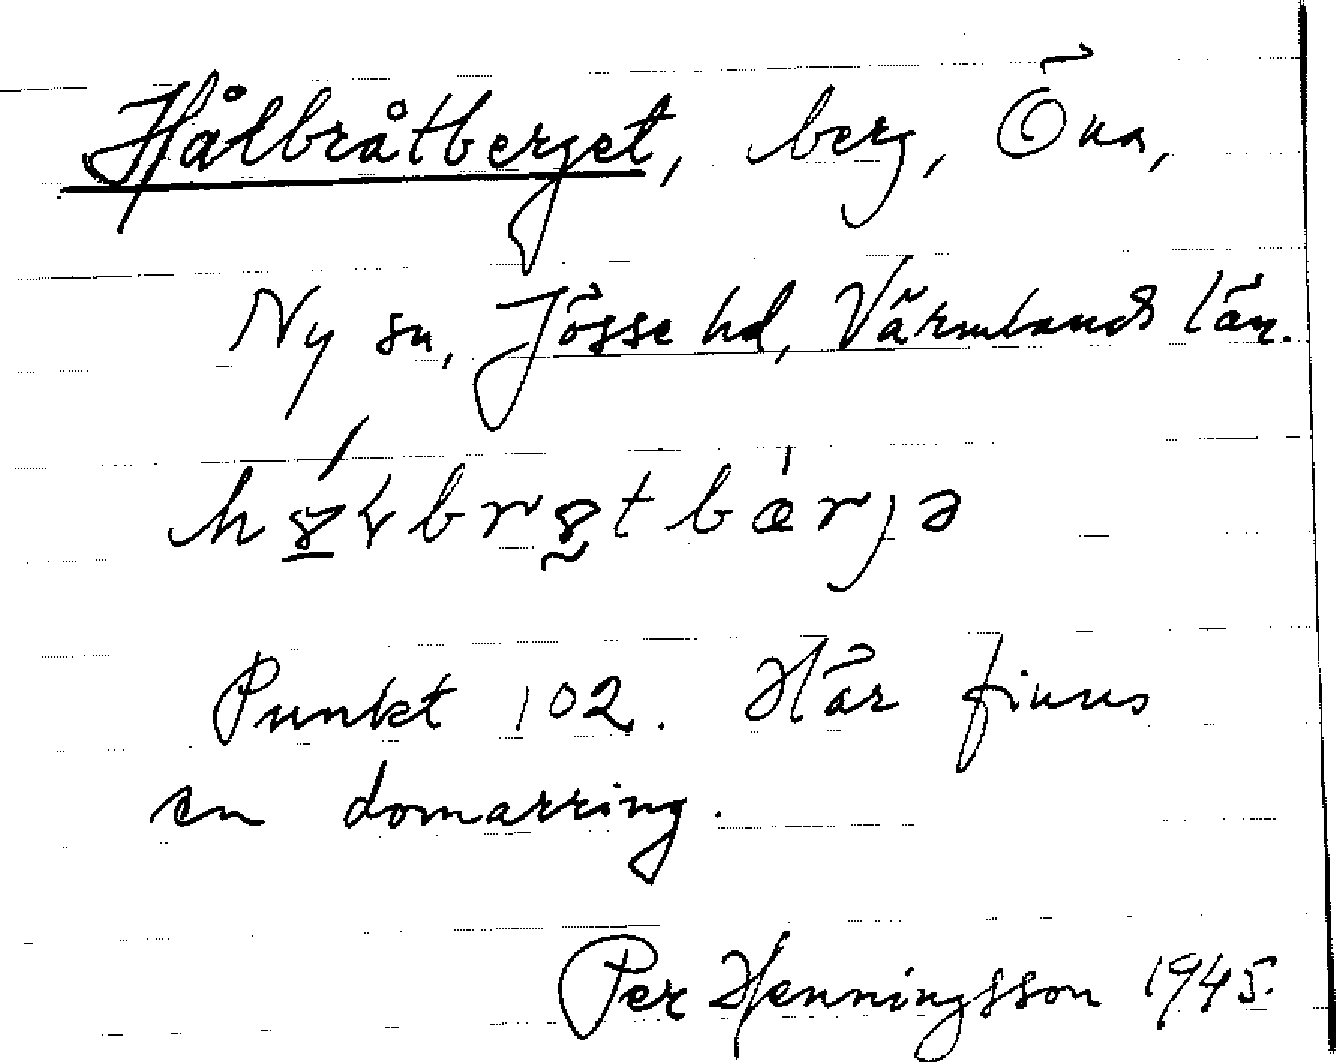 Hålbråtberget, berg, Öna,
Ny sn, Jösse hd, Värmlands län.
Punkt 102. Här finns
en domarring.
Per Henningsson 1945.